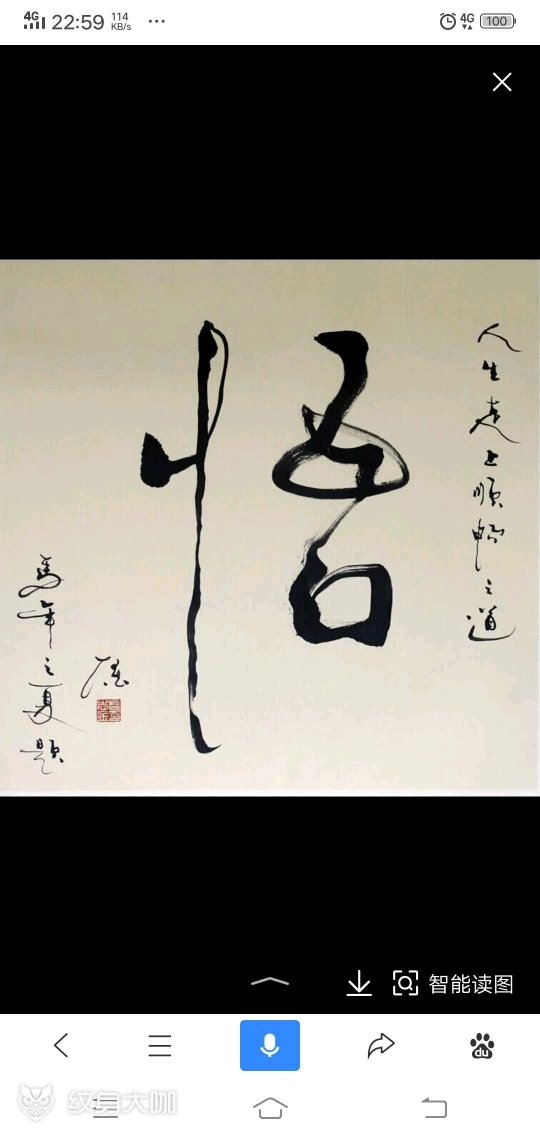 4G 22:59 114 KB/s ... 4G 100
人生走上順暢之道
悟
馬年之夏題
智能读图
du
纹身大咖